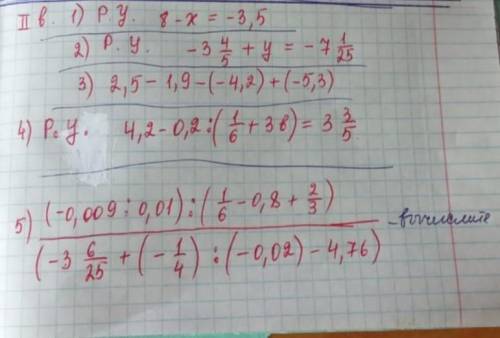 II в. 1) Р.У. 8 - x = -3,5
2) Р.У. -3 4/5 + y = -7 1/25
3) 2,5 - 1,9 - (-4,2) + (-5,3)
4) Р.У. 4,2 - 0,2 : (1/6 + 3в) = 3 3/5
5) (-0,009 : 0,01) : (1/6 - 0,8 + 2/3)
(-3 6/25 + (-1/4) : (-0,02) - 4,76) - вычислите